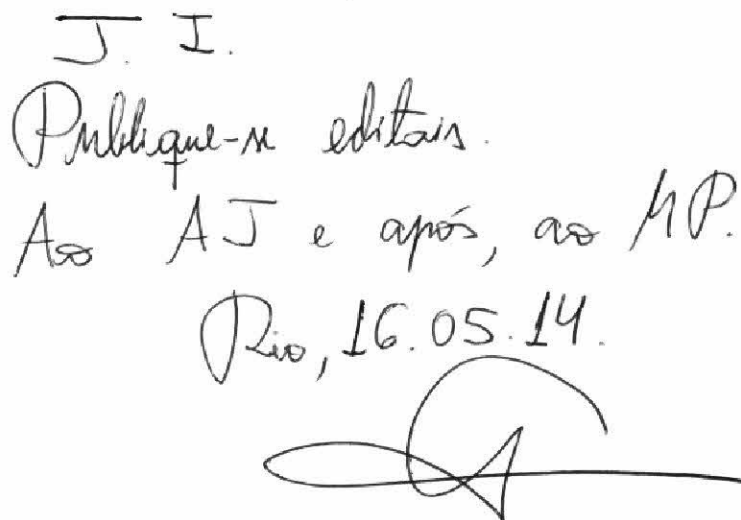 J. I.
Publique-se editais.
Ao AJ e após, ao MP.
Rio, 16.05.14.